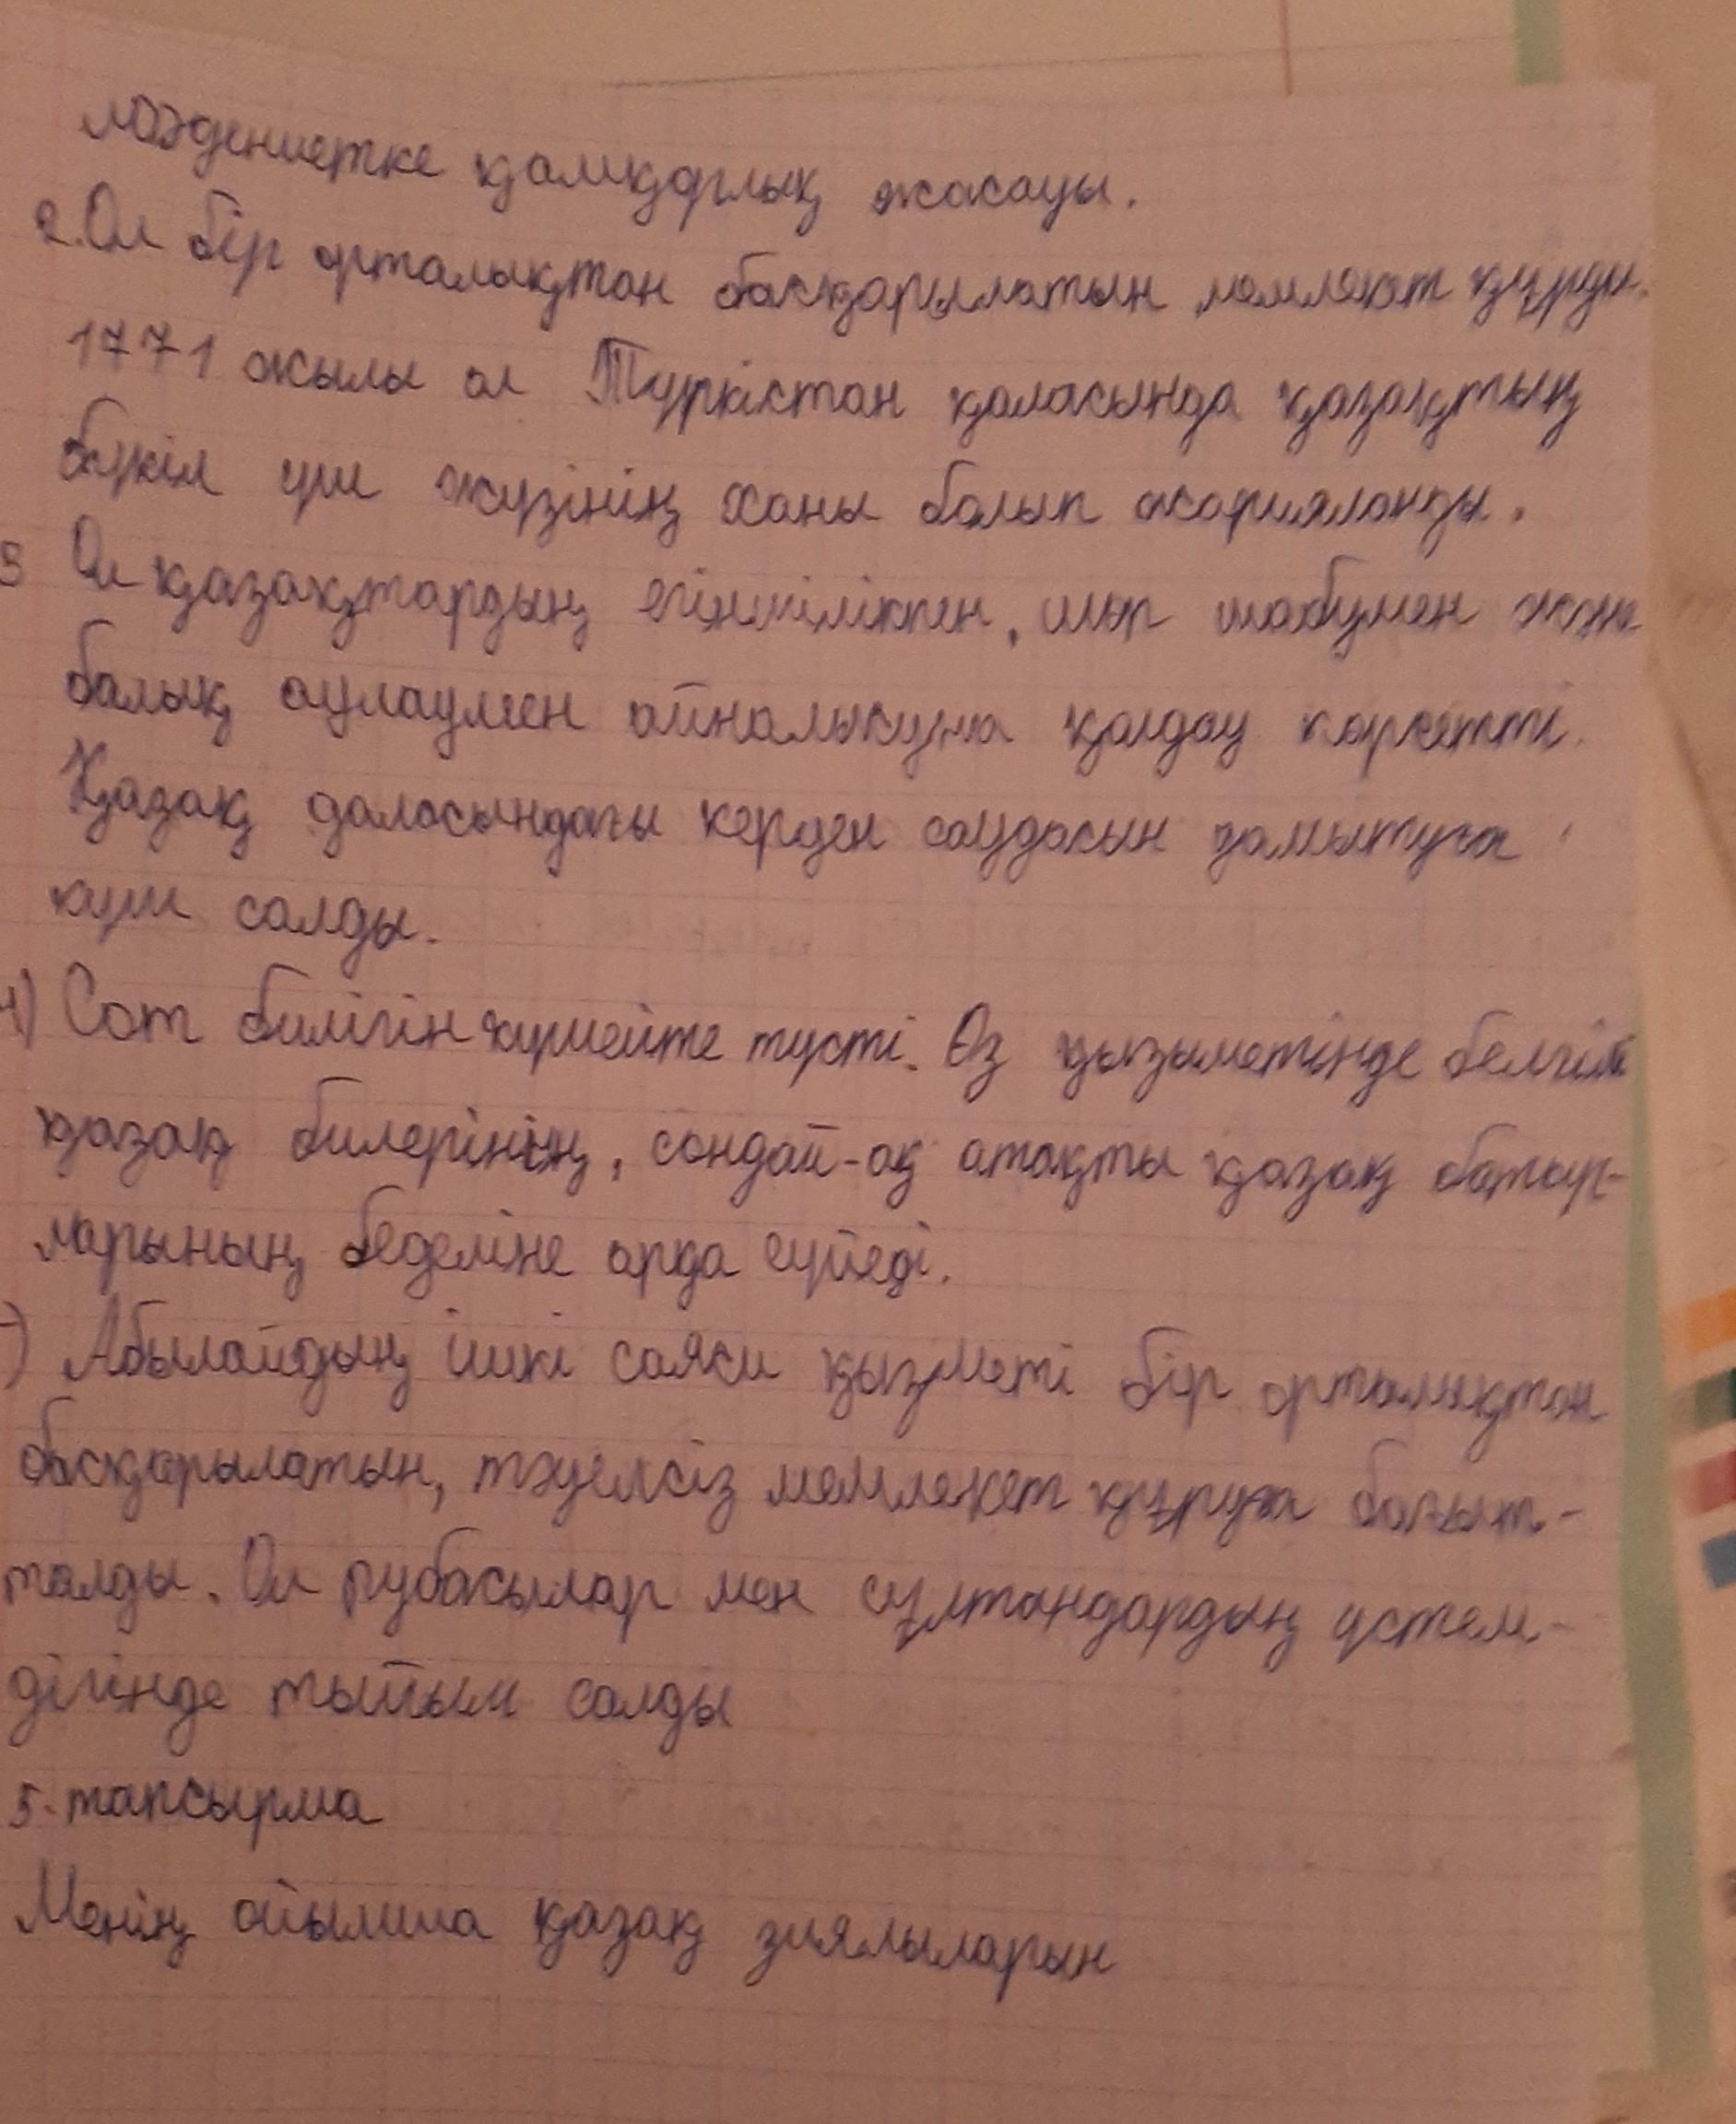 мәдениетке қамқорлық жасауы.
2. Ол бір орталықтан басқарылатын мемлекет құрды.
1771 жылы ол Түркістан қаласында қазақтың
бүкіл үш жүзінің ханы болып жарияланды.
3 Ол қазақтардың егіншілікпен, шөп шабумен және
балық аулаумен айналысуына қолдау көрсетті.
Қазақ даласындағы керден саудасын дамытуға
күш салды.
4) Сот билігін күшейте түсті. Өз қызыметінде белгілі
қазақ билерінің, сондай-ақ атақты қазақ батыр-
ларының беделіне арқа сүйеді.
) Абылайдың ішкі саяси қызметі бір орталықтан
басқарылатын, тәуелсіз мемлекет құруға бағыт-
талды. Ол рубасылар мен сұлтандардың үстем-
дігінде тыйым салды
5-тапсырма
Менің ойымша қазақ зиялыларын